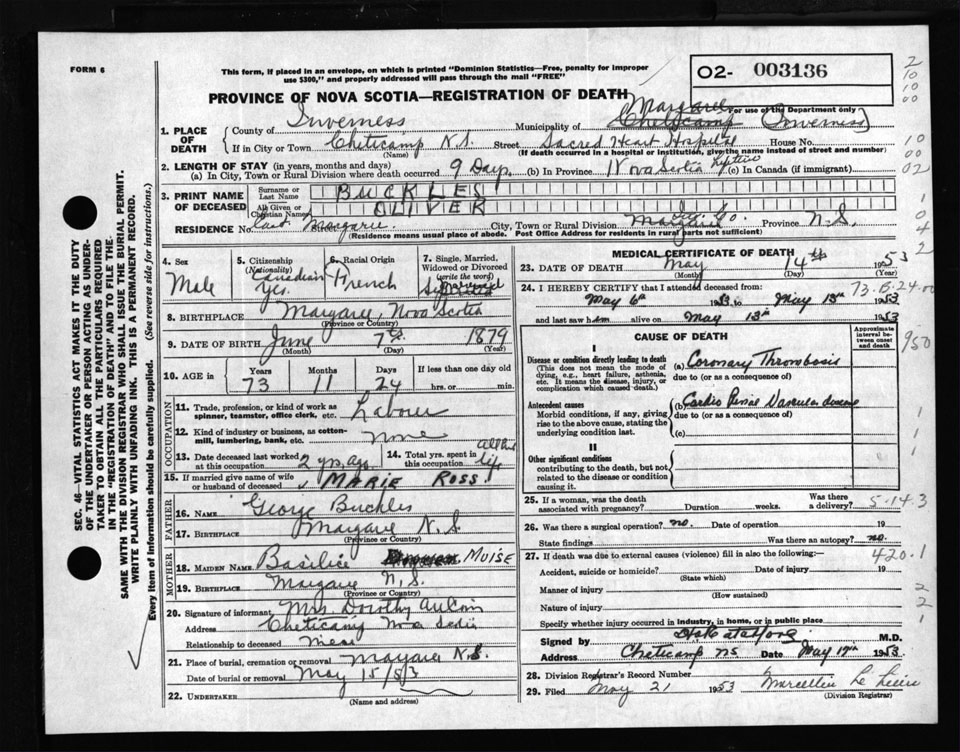 FORM 6
This form, if placed in an envelope, on which is printed "Dominion Statistics—Free, penalty for improper
use $300," and properly addressed will pass through the mail "FREE"
02- 003136
PROVINCE OF NOVA SCOTIA—REGISTRATION OF DEATH
For use of the Department only
Margaree
1. PLACE OF DEATH County of Inverness Municipality of Cheticamp Inverness
If in City or Town Cheticamp N.S. Street Sacred Heart Hospital House No.
(Name) (If death occurred in a hospital or institution, give the name instead of street and number)
2. LENGTH OF STAY (in years, months and days)
(a) In City, Town or Rural Division where death occurred 9 Days (b) In Province Nova Scotia Lifetime (c) In Canada (if immigrant)
3. PRINT NAME OF DECEASED Surname or Last Name BUCKLES
All Given or Christian Names OLIVER
RESIDENCE No. East Margaree City, Town or Rural Division Province N.S.
(Residence means usual place of abode. Post Office Address for residents in rural parts not sufficient)
4. Sex Male
5. Citizenship (Nationality) Canadian Yes.
6. Racial Origin French
7. Single, Married, Widowed or Divorced (write the word)
8. BIRTHPLACE Margaree, Nova Scotia
(Province or Country)
9. DATE OF BIRTH June 7th 1879
(Month) (Day) (Year)
10. AGE Years 73 Months 11 Days 24 If less than one day old hrs. or min.
OCCUPATION
11. Trade, profession, or kind of work as spinner, teamster, office clerk, etc. Labourer
12. Kind of industry or business, as cotton-mill, lumbering, bank, etc. None
13. Date deceased last worked at this occupation 2 yrs. ago
14. Total yrs. spent in this occupation all his life
15. If married give name of wife or husband of deceased MARIE ROSS
FATHER
16. Name George Buckles
17. Birthplace Margaree N.S
(Province or Country)
MOTHER
18. MAIDEN NAME Basilice MUISE
19. BIRTHPLACE Margaree N.S.
(Province or Country)
20. Signature of informant Mrs. Dorothy AuCoin
Address Cheticamp Nova Scotia
Relationship to deceased Niece
21. Place of burial, cremation or removal Margaree N.S.
Date of burial or removal May 15/53
22. UNDERTAKER
(Name and Address)
MEDICAL CERTIFICATE OF DEATH
23. DATE OF DEATH May 14th 1953
(Month) (Day) (Year)
24. I HEREBY CERTIFY that I attended deceased from:
May 6th 1953 to May 13th 1953
and last saw him alive on May 13th 1953
CAUSE OF DEATH
Approximate interval between onset and death
I
Disease or condition directly leading to death
(This does not mean the mode of dying, e.g., heart failure, asthenia, etc. It means the disease, injury, or complication which caused death.)
(a) Coronary Thrombosis
due to (or as a consequence of)
Antecedent causes
Morbid conditions, if any, giving rise to the above cause, stating the underlying condition last.
(b) Cardio Renal Vascular disease
due to (or as a consequence of)
(c)
II
Other significant conditions
contributing to the death, but not related to the disease or condition causing it.
25. If a woman, was the death associated with pregnancy? Duration weeks. Was there a delivery?
26. Was there surgical operation? no. Date of operation 19
State findings Was there an autopsy? no.
27. If death was due to external causes (violence) fill in also the following:—
Accident, suicide or homicide? Date of injury 19
(State which)
Manner of injury
(How sustained)
Nature of injury
Specify whether injury occurred in industry, in home, or in public place
Signed by M.D.
Address Cheticamp NS. Date May 17th 1953.
28. Division Registrar's Record Number
29. Filed May 21 1953
(Division Registrar)
SEC. 46—VITAL STATISTICS ACT MAKES IT THE DUTY
OF THE UNDERTAKER OR PERSON ACTING AS UNDER-
TAKER TO OBTAIN ALL THE PARTICULARS REQUIRED
IN THE "REGISTRATION OF DEATH" AND TO FILE THE
SAME WITH THE DIVISION REGISTRAR WHO SHALL ISSUE THE BURIAL PERMIT.
WRITE PLAINLY WITH UNFADING INK. THIS IS A PERMANENT RECORD.
Every item of information should be carefully supplied. (See reverse side for instructions.)
2
10
10
00
10
00
02
1
0
4
2
73.B-24.00
950
1
1
5-14-3
420.1
2
2
1